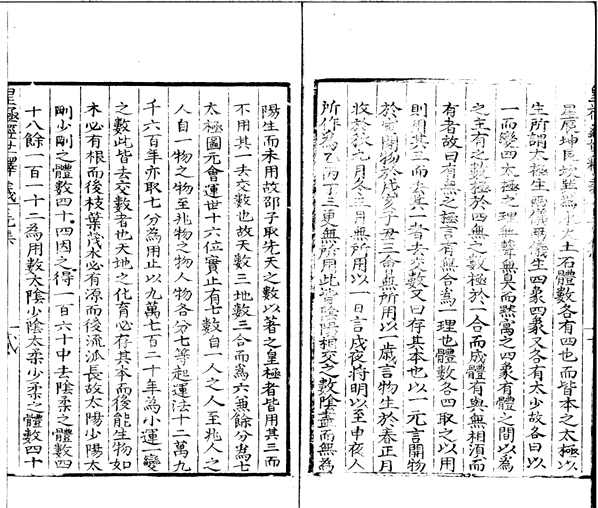 星辰坤艮坎巽為水火土石體數各有四也而皆本之太極以
生所謂太極生兩儀兩儀生四象四象又各有太少故各曰以
一而變四太極之理無聲無臭而默寓之四象有體之間以為
之主有之數極於四無之數極於一合而成體有與無相須而
有者故曰有無之極言有無合為一理也體數各四取之以用
則須其三而去其一者去交數又曰存其本也以一元言開物
於寅閉物於戌亥子丑三合無所用以一歲言物生於春正月
收於秋九月冬三月無所用以一日言戌夜將明以至申夜人
所作為乙丙丁三更無所用此皆陰陽相交之數陰益而無為
陽生而未用故邵子取先天之數以著之皇極者皆用其三而
不用其一去交數也故天數三地數三合而為六兼餘分為七
太極圖元會運世十六位實止有七數自一人之人至兆人之
人自一物之物至兆物之物人物各分七等起運法十二萬九
千六百年亦取七分為用止以九萬七百二十年為小運一變
之數此皆去交數者也天地之化育必存其本而後能生物如
木必有根而後枝葉茂水必有源而後流派長故太陽少陽太
剛少剛之體數四十四因之得一百六十中去陰柔之體數四
十八餘一百一十二為用數太陰少陰太柔少柔之體數四十
皇極經世釋義